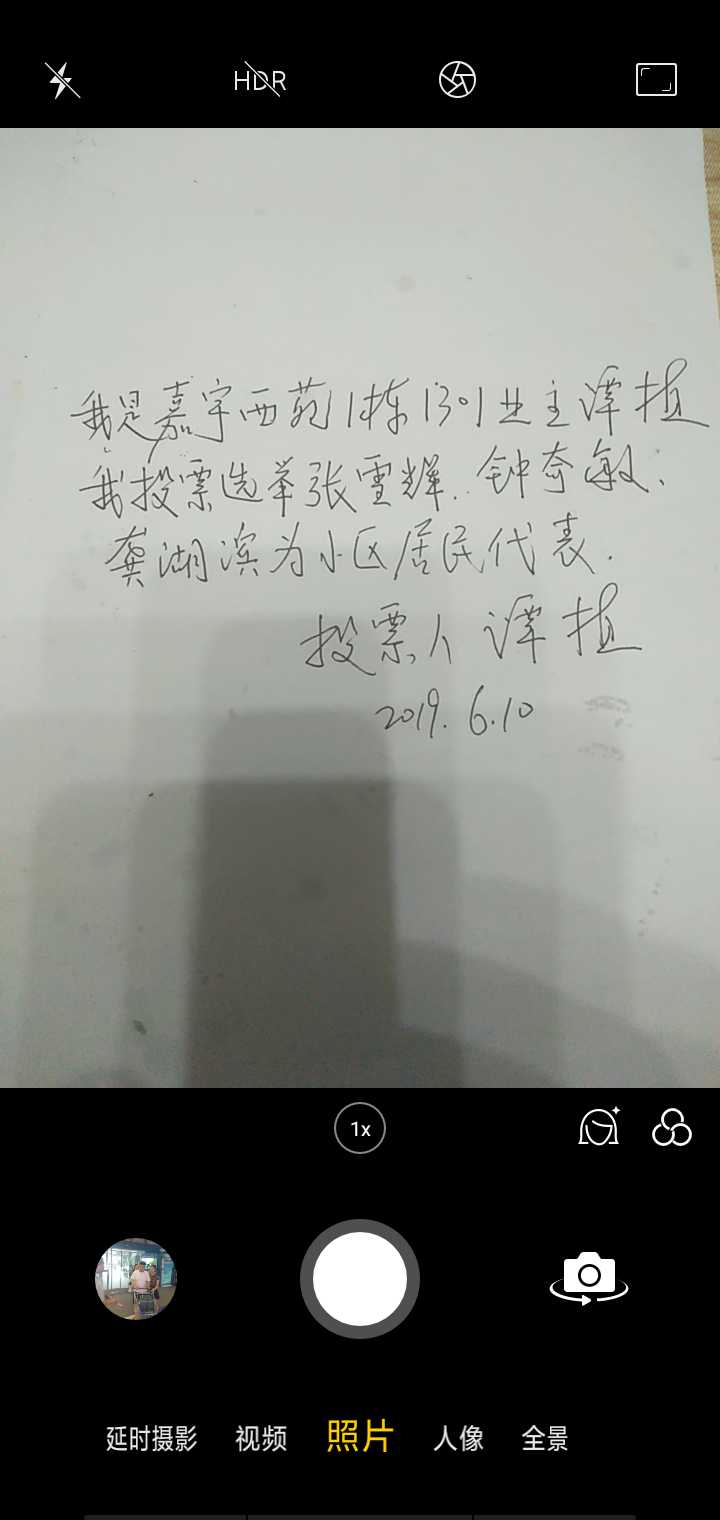 HDR
我是嘉宇西苑1栋1301业主谭植
我投票选举张雪辉、钟奇敏、
龚湖滨为小区居民代表.
投票人 谭植
2019.6.10
1x
延时摄影 视频 照片 人像 全景